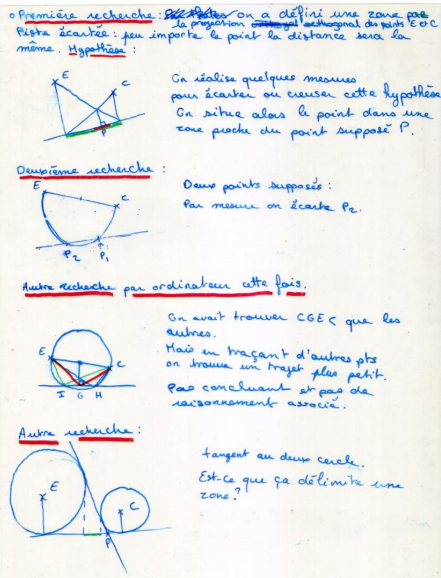 o Première recherche : on a défini une zone par
la projection orthogonal des points E et C
Piste écartée : peu importe le point la distance sera la
même. Hypothèse :
E
C
P
On réalise quelques mesures
pour écarter ou creuser cette hypothèse
On situe alors le point dans une
zone proche du point supposé P.
Deuxième recherche :
E
C
P2
P1
Deux points supposés :
Par mesure on écarte P2.
Autre recherche par ordinateur cette fois.
E
C
I G H
On avait trouver CGE < que les
autres.
Mais en traçant d'autres pts
on trouve un trajet plus petit.
Pas concluant et pas de
raisonnement associé.
Autre recherche :
E
C
P
tangent au deux cercle.
Est-ce que ça délimite une
zone ?